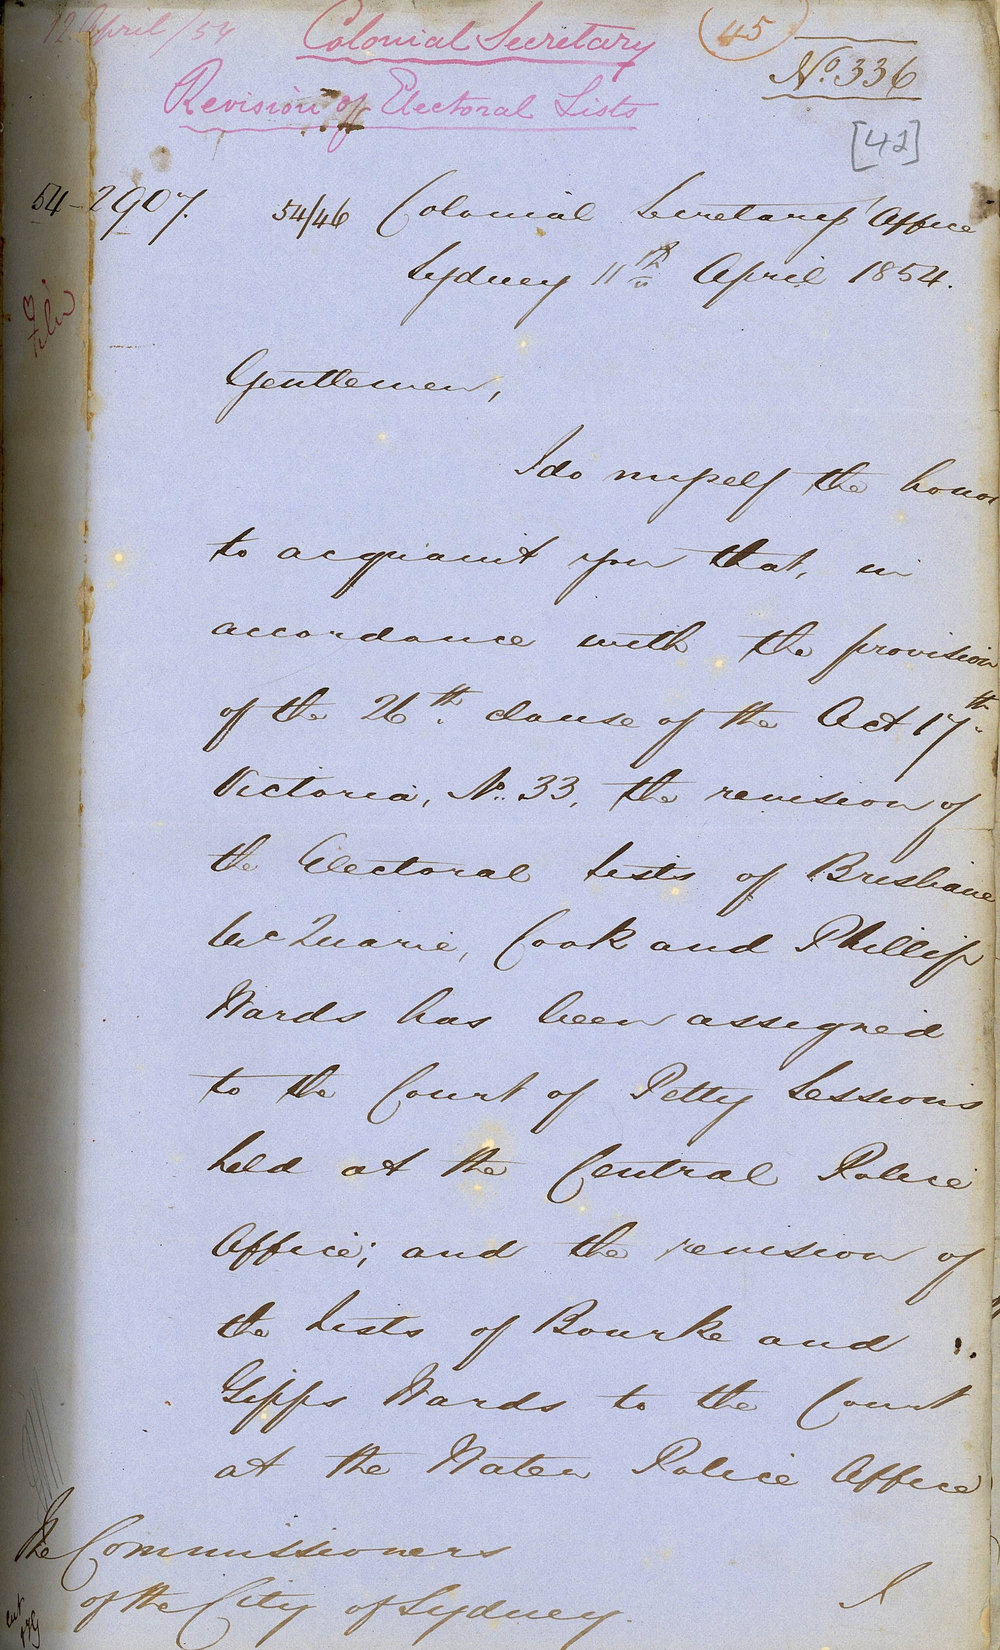 12 April/54
Colonial Secretary
45
No. 336
Revision of Electoral Lists
[42]
54-2907.
54/46 Colonial Secretary's Office
Sydney 11th April 1854.
Gentlemen,
I do myself the honor
to acquaint you that, in
accordance with the provision
of the 26th clause of the Act 17th
Victoria, No. 33, the revision of
the Electoral Lists of Brisbane
McQuarie, Cook and Phillip
Wards has been assigned
to the Court of Petty Sessions
held at the Central Police
Office; and the revision of
the Lists of Bourke and
Gipps Wards to the Court
at the Water Police Office
The Commissioners
of the City of Sydney.
I